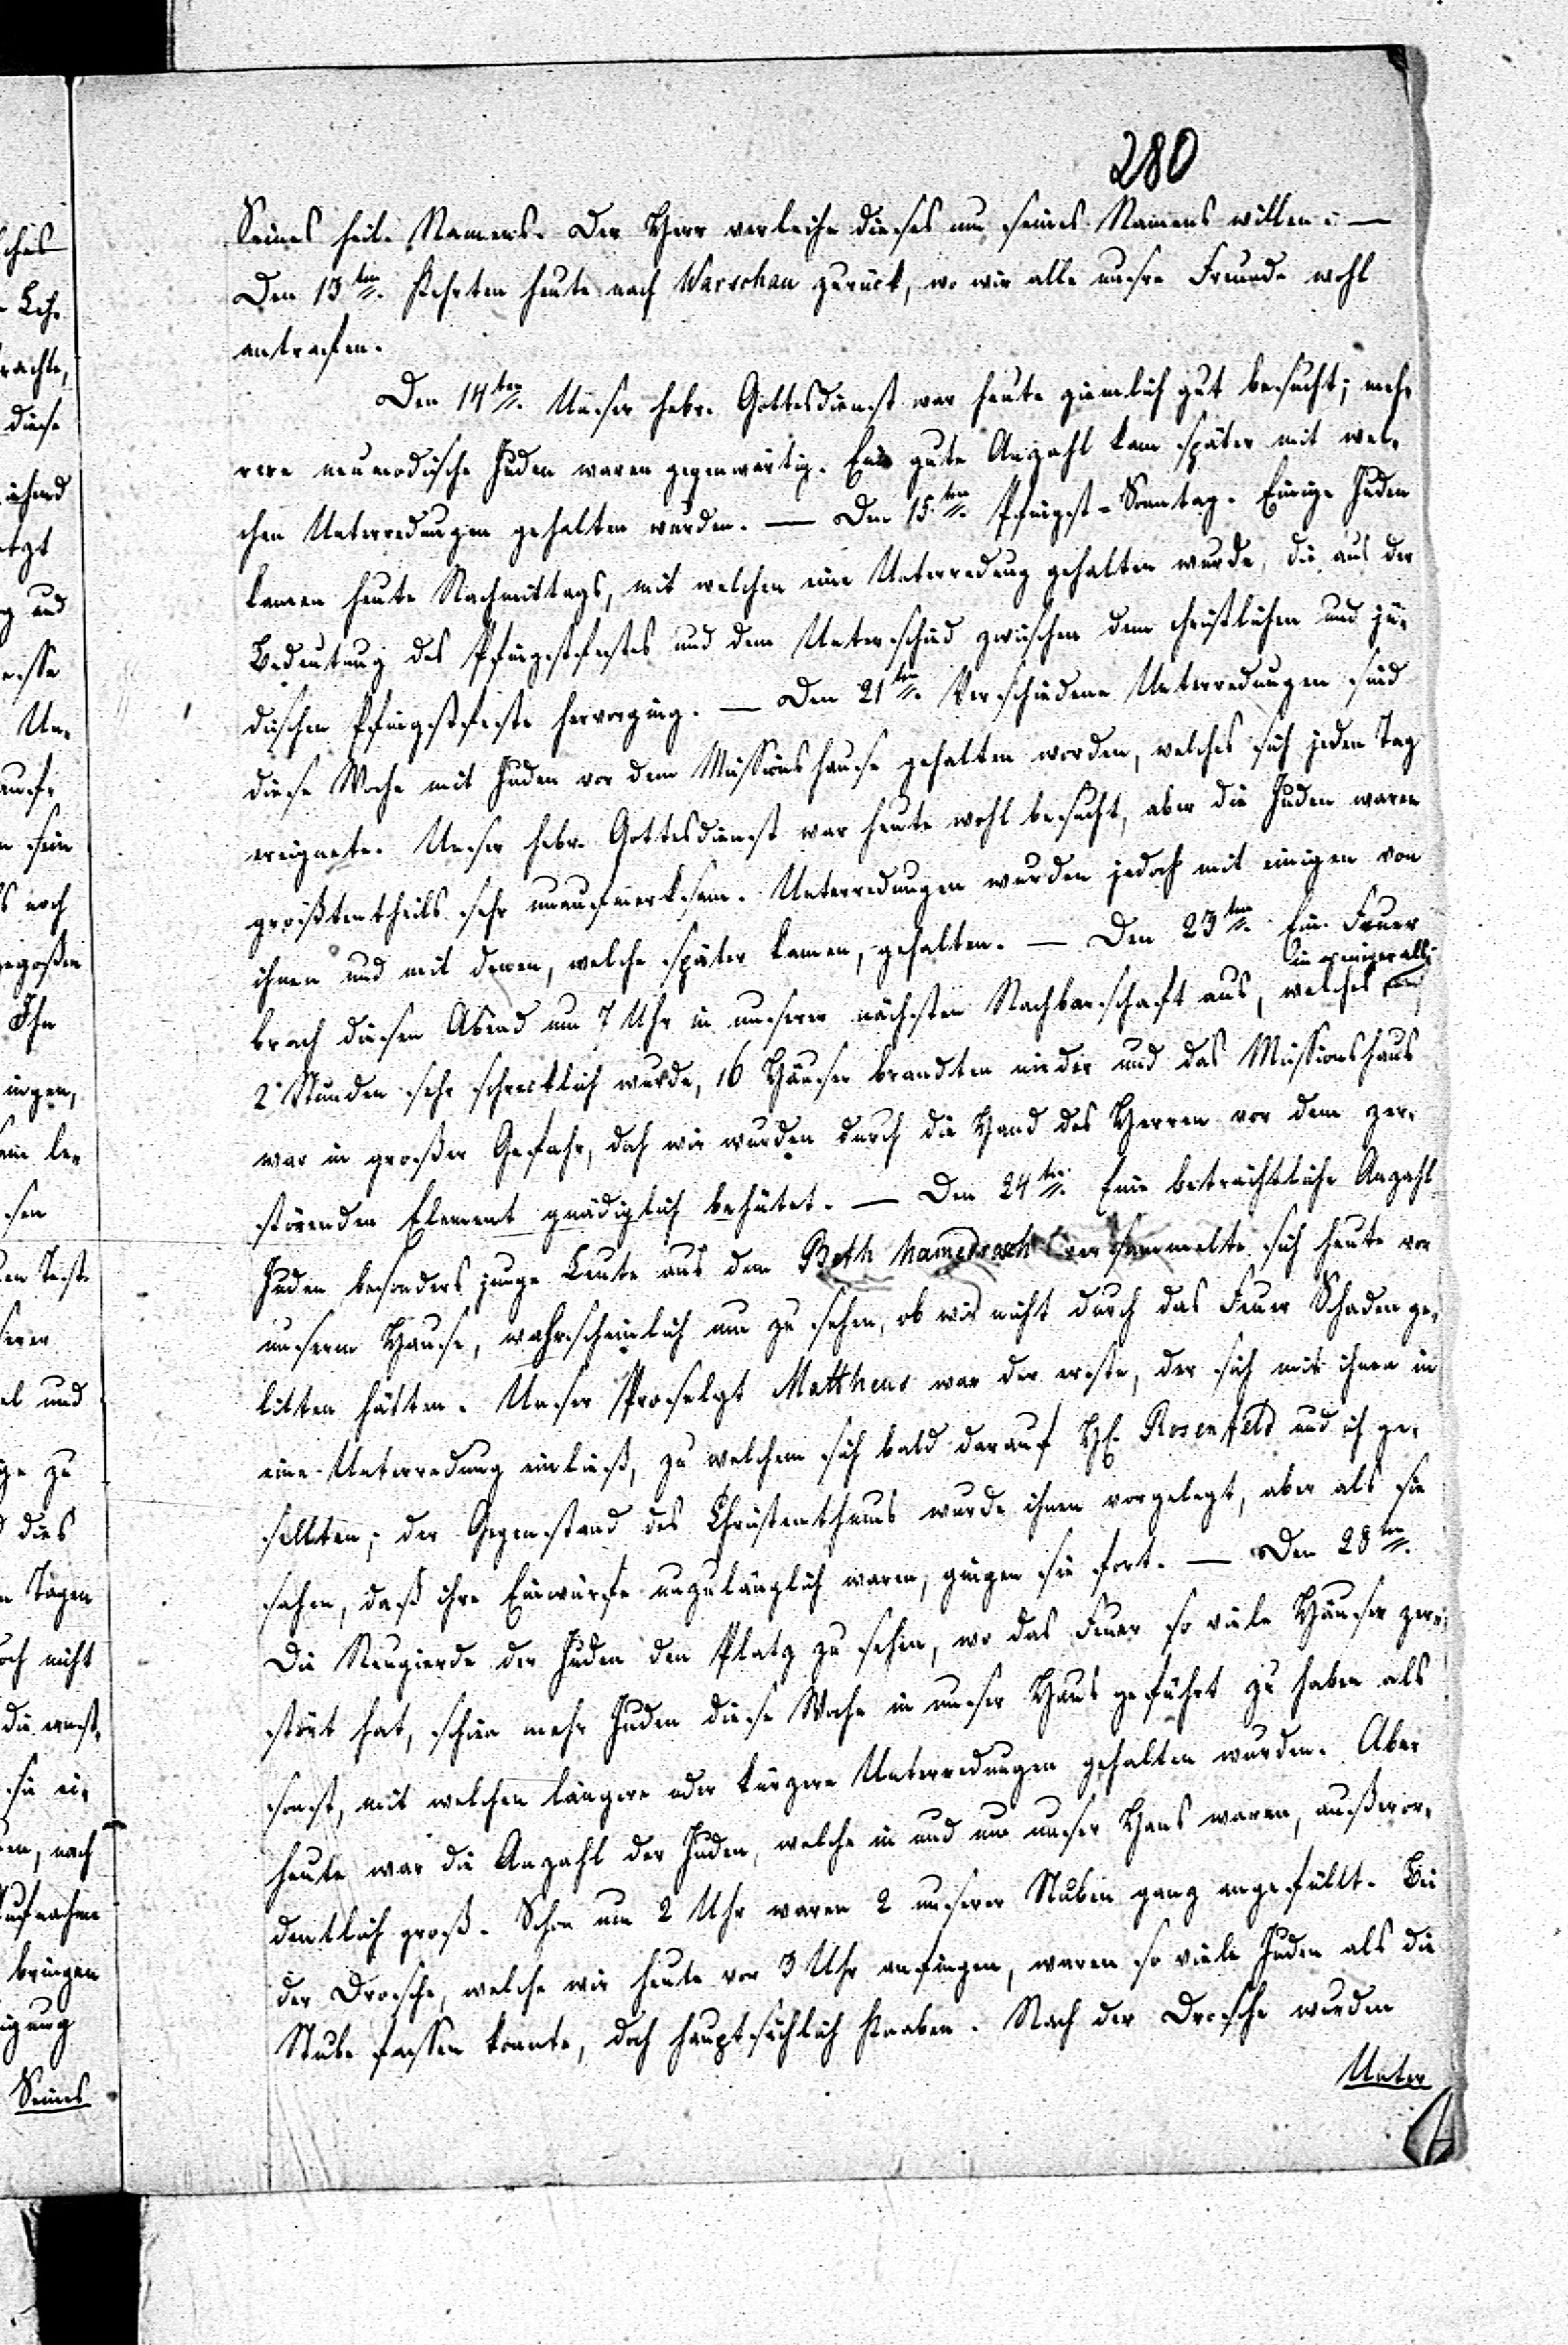 280
Seines heil. Namens. Der Herr verleihe dieses um seines Namens willen. —
Den 13ten. kehrten heute nach Warschau zurück, wo wir alle unsre Freunde wohl
antrafen.
Den 14ten. Unser hebr. Gottesdienst war heute ziemlich gut besucht; meh-
rere neumodische Juden waren gegenwärtig. Eine gute Anzahl kam später mit wel-
chen Unterredungen gehalten wurden. — Den 15ten. Pfingst-Sonntag. Einige Juden
kamen heute Nachmittags, mit welchen eine Unterredung gehalten wurde, die aus der
Bedeutung des Pfingstfestes und dem Unterschied zwischen dem christlichen und jü-
dischen Pfingstfeste hervorging. — Den 21ten. Verschiedene Unterredungen sind
diese Woche mit Juden vor dem Missionshause gehalten worden, welches sich jeden Tag
ereignete. Unser hebr. Gottesdienst war heute wohl besucht, aber die Juden waren
größtentheils sehr unaufmerksam. Unterredungen wurden jedoch mit einigen von
ihnen und mit denen, welche später kamen, gehalten. — Den 23ten. Ein Feuer
brach diesen Abend um 7 Uhr in unserer nächsten Nachbarschaft aus, welches in weniger als
2 Stunden sehr schrecklich wurde, 16 Häuser brandten nieder und das Missionshaus
war in großer Gefahr, doch wir wurden durch die Hand des Herren vor dem zer-
störenden Element gnädiglich behütet. — Den 24ten. Eine beträchtliche Anzahl
Juden besonders junge Leute aus dem Beth hamedrasch versammelte sich heute vor
unserm Hause, wahrscheinlich um zu sehen, ob wir nicht durch das Feuer Schaden ge-
litten hätten. Unser Proselyt Mattheus war der erste, der sich mit ihnen in
eine Unterredung einließ, zu welchem sich bald darauf H. Rosenfeld und ich ge-
sellten; der Gegenstand des Christenthums wurde ihnen vorgelegt, aber als sie
sahen, daß ihre Einwürfe unzulänglich waren, gingen sie fort. — Den 28ten.
Die Neugierde der Juden den Platz zu sehen, wo das Feuer so viele Häuser zer-
stört hat, schien mehr Juden diese Woche in unser Haus geführt zu haben als
sonst, mit welchen längere oder kürzere Unterredungen gehalten wurden. Aber
heute war die Anzahl der Juden, welche in und um unser Haus waren, außeror-
dentlich groß. Schon um 2 Uhr waren 2 unserer Stuben ganz angefüllt. Bei
der Drosche, welche wir heute vor 3 Uhr anfingen, waren so viele Juden als die
Stube fassen konnte, doch hauptsächlich Knaben. Nach der Drosche wurden
Unter